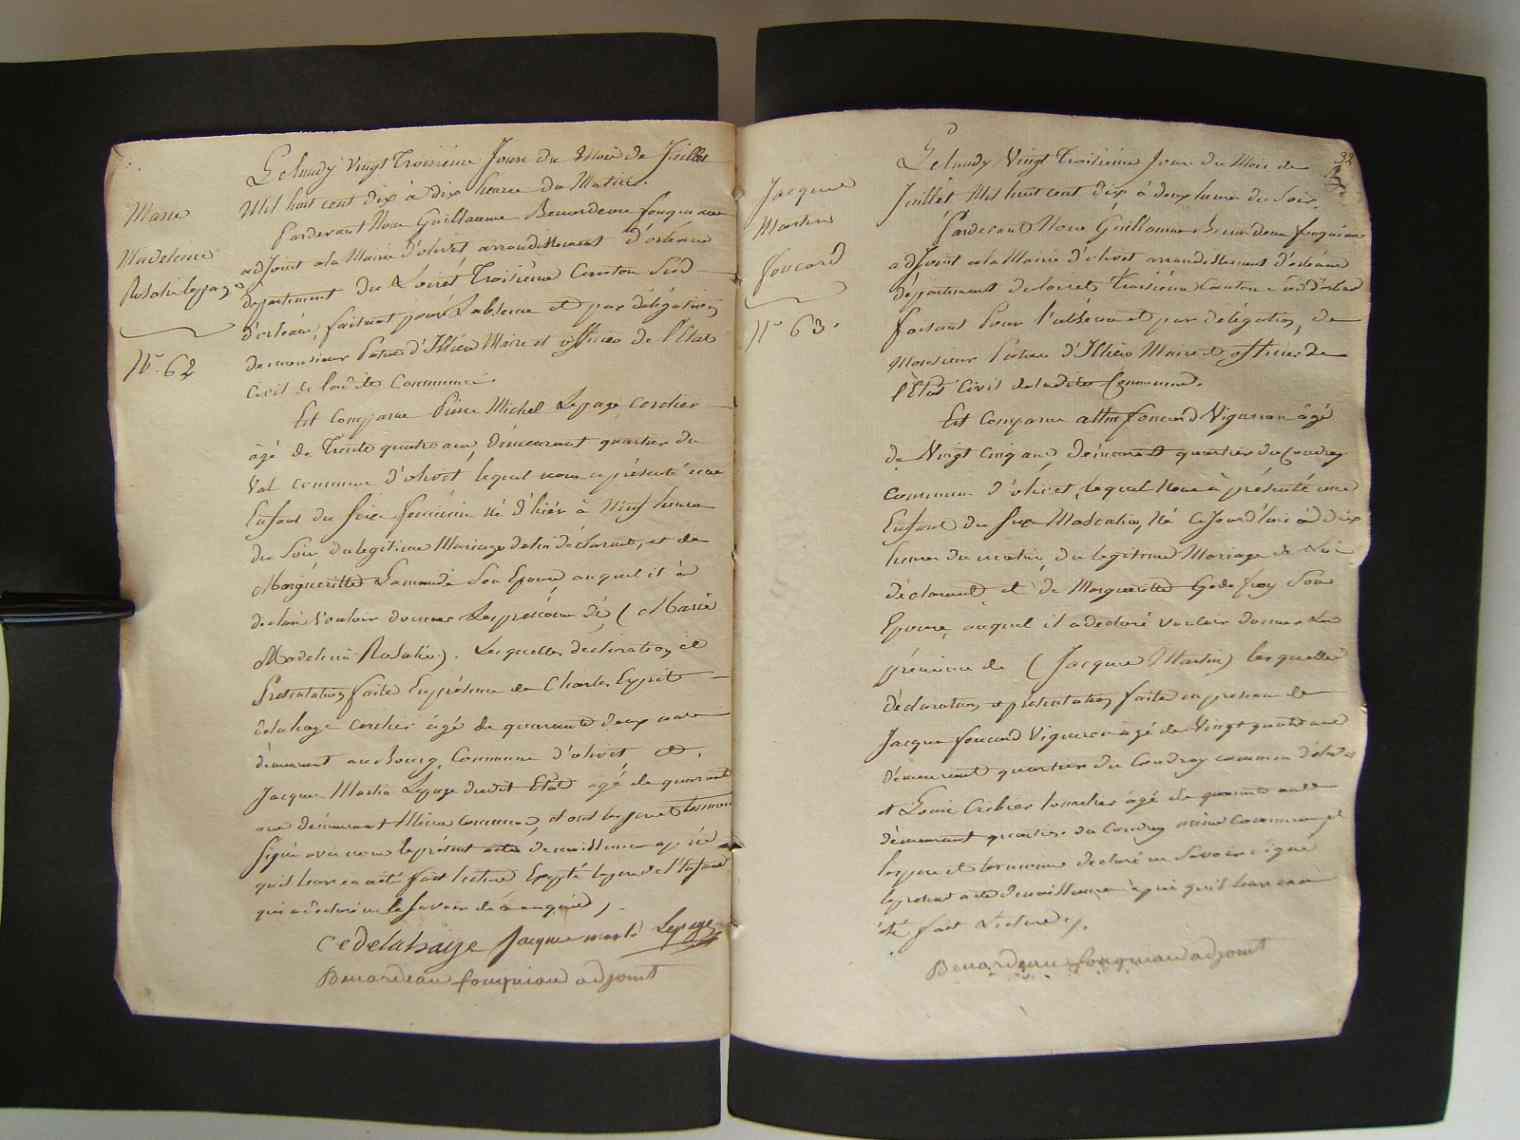 Marie
Madeleine
Rosalie Lepage
No. 62
Le lundy Vingt Troisième Jour du Mois de Juillet
Mil huit cent dix à dix heures du Matin.
Pardevant Nous Guillaume Benardeau fouqueau
adjoint à la Mairie d'olivet arrondissement d'orleans
département du Loiret Troisième Canton Sud
d'orleans, faisant pour l'absence et par délégation
de monsieur Patas d'Illiers Maire et officier de l'Etat
Civil de ladite Commune.
Est Comparu Pierre Michel Lepage cerclier
âgé de Trente quatre ans, démeurant quartier du
Val commune d'olivet lequel nous a présenté une
Enfant du sexe feminin né d'hiér à Neuf heures
du Soir du legitime Mariage de lui déclarant, et de
Margueritte Son Epouse auquel il à
declaré Vouloir donner Les prénoms dé (Marie
Madeleine Rosalie). Lesquelles déclaration et
Présentation faite En présence de Charles Esprit
delahaye cerclier âgé de quarante deux ans
démeurant au Bourg, Commune d'olivet, et.
Jacques Martin Lepage dudit Etat agé de quarante
ans démeurant Même commune, et ont les pere et temoins
Signé avec nous le présent acte de naissance après
qu'il leur en a été fait lecture Excepté le pere de l'Enfant
qui a déclaré ne le savoir de ce enquis,
C E delahaye Jacque marti Lepage
Benardeau fouqueau adjoint
32
Jacques
Martin
foucard
No 63.
Le lundy Vingt Troisième Jour du Mois de
Juillet Mil huit cent dix à deux heures du Soir.
Pardevant Nous Guillaume Benardeau fouqueau
adjoint à la Mairie d'olivet arrondissement d'orleans
département du loiret, Troisième Canton Sud d'orleans
faisant Pour l'absence et par délégation, de
Monsieur Patas d'Illiers Maire et officier de
l'Etat Civil de ladite Commune.
Est Comparu foucard Vigneron âgé
de Vingt Cinq ans, démeurant quartier du Coudray
commune d'olivet, lequel Nous à présenté une
Enfant du sexe Masculin, Né Cejourd'hui à dix
heures du matin, du legitime Mariage de Lui
déclarant et de Marguerite Godefroy Son
Epouse, auquel il a declaré vouloir donner les
prénoms de (Jacques Martin) lesquelles
déclaration et présentation faite en presence de
Jacques foucard Vigneron agé de Vingt quatre ans
démeurant quartier du Coudray commune d'olivet
et Louis Cribier tonnelier âgé de quarante ans
démeurant quartier du Coudray même Commune et
les pere et temoins declaré ne Savoir signer
le present acte de naissance après qu'il leur en a
été fait Lecture,
Benardeau fouqueau adjoint